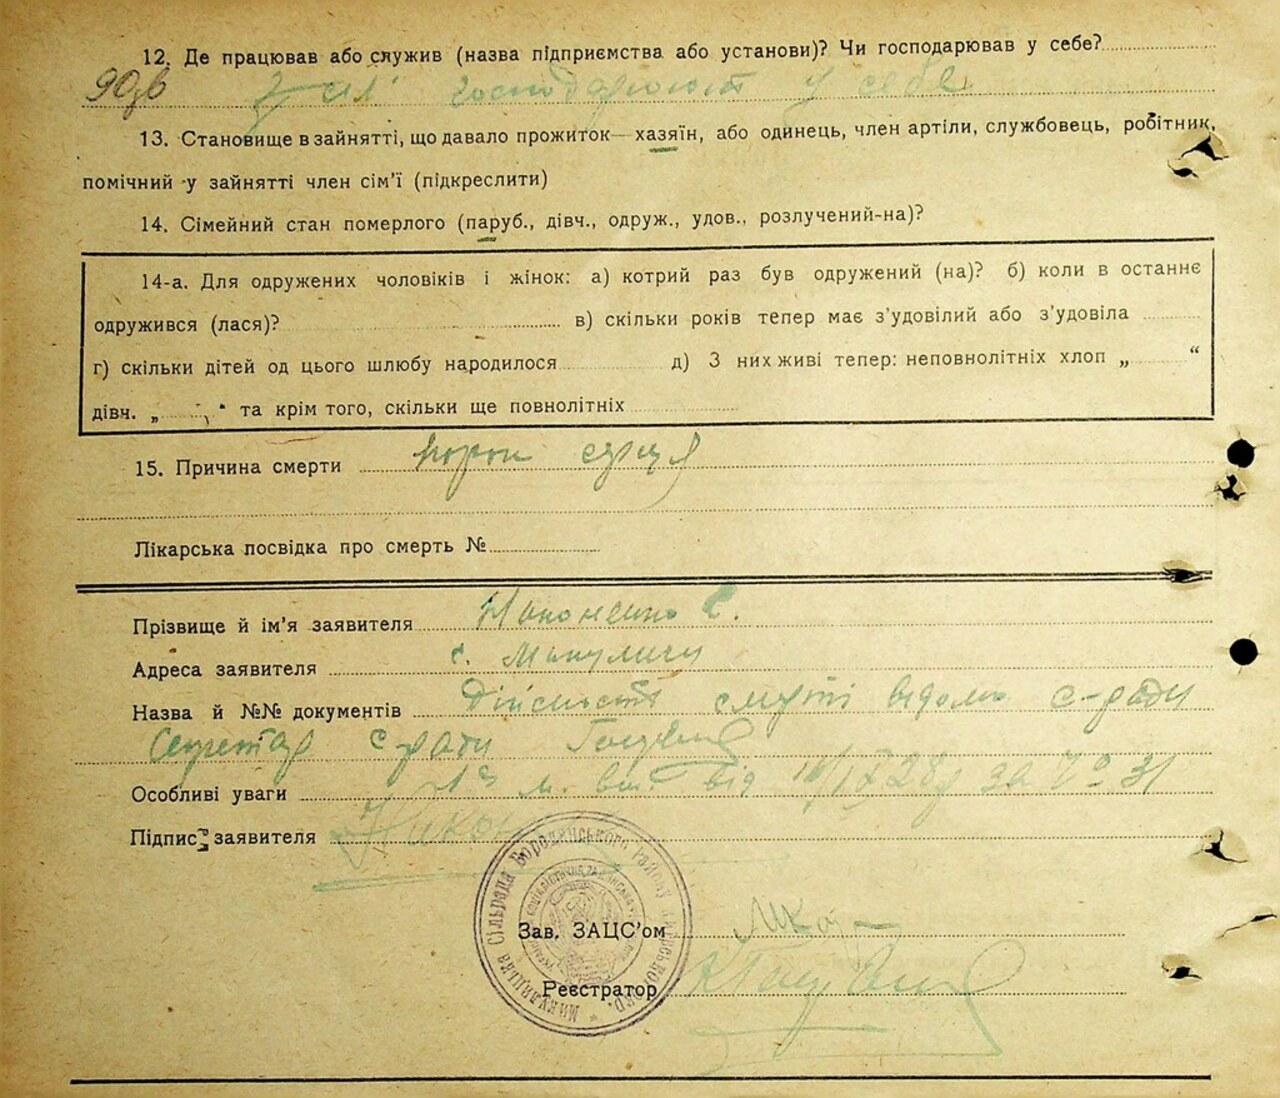 12. Де працював або служив (назва підприємства або установи)? Чи господарював у себе?
У селі господарюют у себе
13. Становище в зайнятті, що давало прожиток—хазяїн, або одинець, член артіли, службовець, робітник,
помічний у зайнятті член сім'ї (підкреслити)
14. Сімейний стан померлого (паруб., дівч., одруж., удов., розлучений-на)?
14-а. Для одружених чоловіків і жінок: а) котрий раз був одружений (на)? б) коли в останнє
одружився (лася)? в) скільки років тепер має з'удовілий або з'удовіла
г) скільки дітей од цього шлюбу народилося д) З них живі тепер: неповнолітніх хлоп „ “
дівч. „ “ та крім того, скільки ще повнолітніх
15. Причина смерти порок серця
Лікарська посвідка про смерть №
Прізвище й ім'я заявителя С.
Адреса заявителя с. Микуличи
Назва й №№ документів Дійсність смерті відома с-ради
Секретар с ради
Особливі уваги від за № 31
Підпис заявителя
Микулицька Сільрада Бородянського району Київської окр.
Зав. ЗАЦС'ом
Реєстратор